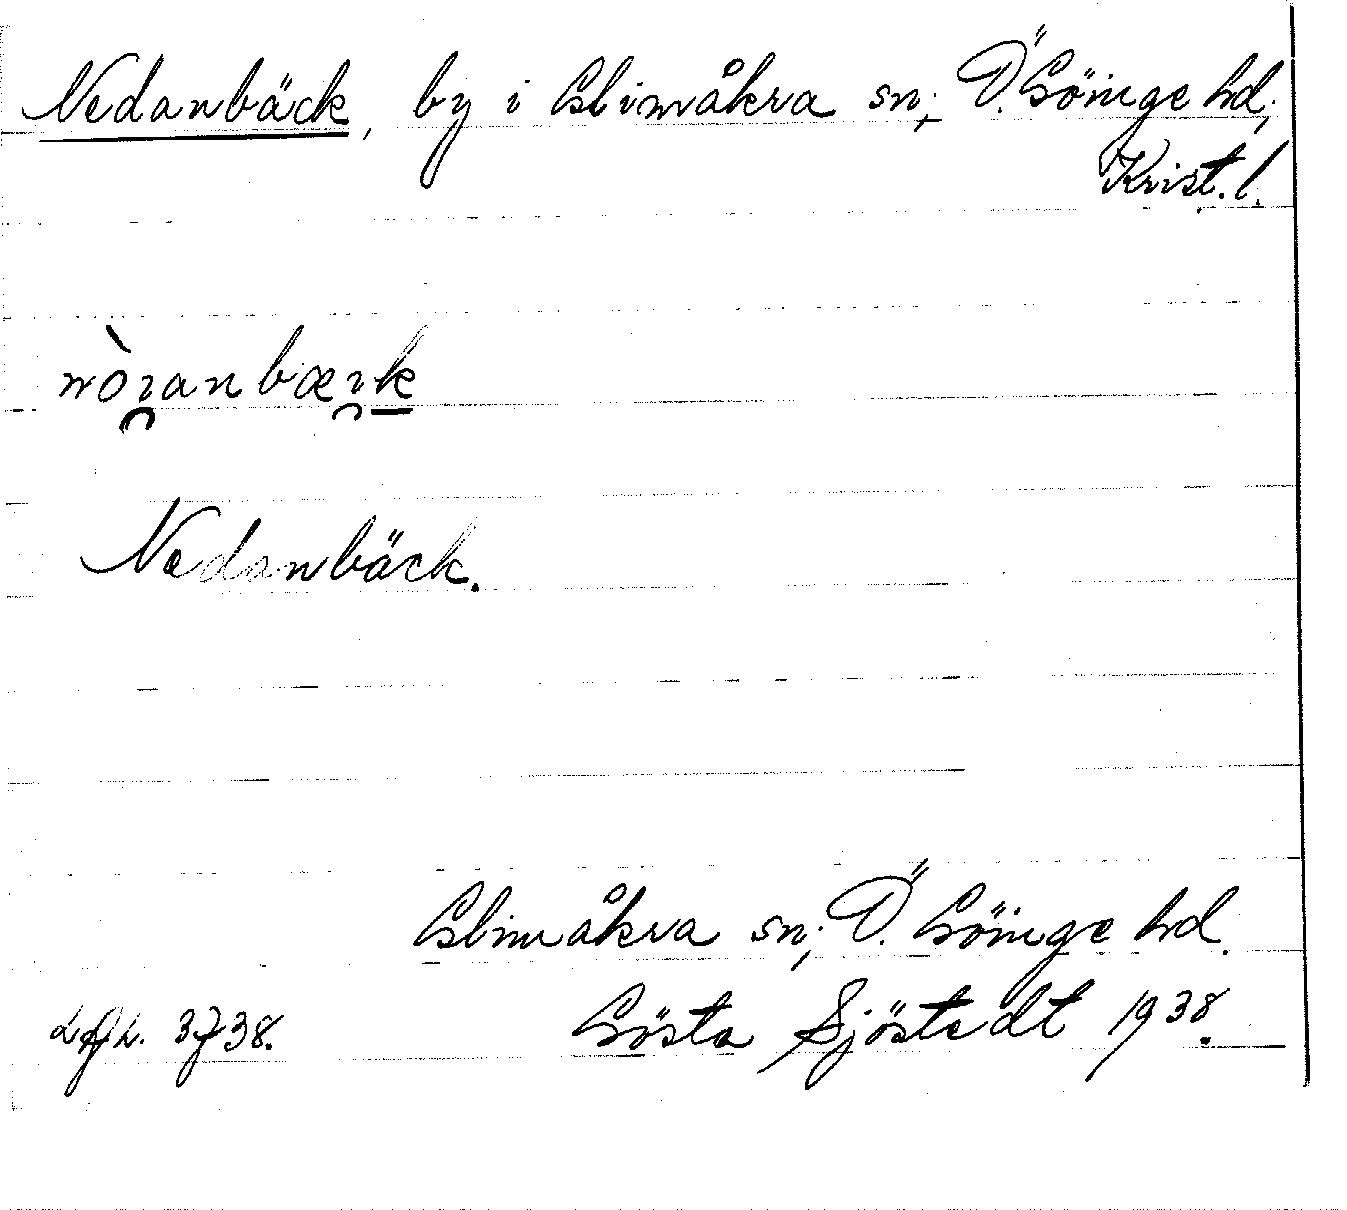 Nedanbäck, by i Glimåkra sn; Ö. Göinge hd;
Krist. l.
nòɪ̯anbæɪ̯k
Nedanbäck.
Glimåkra sn; Ö. Göinge hd.
Gösta Sjöstedt 1938.